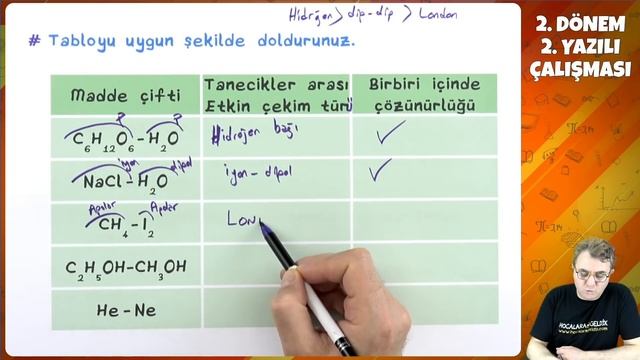 Hidrojen > dip-dip > London
# Tabloyu uygun şekilde doldurunuz.
2. DÖNEM
2. YAZILI
ÇALIŞMASI
Madde çifti
Tanecikler arası
Etkin çekim türü
Birbiri içinde
çözünürlüğü
P P
C6H12O6-H2O
Hidrojen bağı ✓
iyon dipol
NaCl-H2O
iyon-dipol ✓
Apolar Apolar
CH4-I2
Lon
C2H5OH-CH3OH
He-Ne
HOCALARA GELDİK